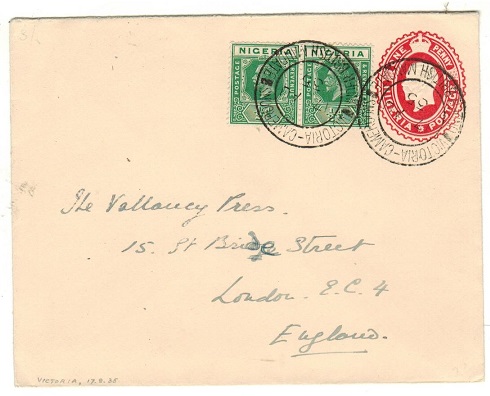 NIGERIA NIGERIA
POSTAGE POSTAGE
ONE PENNY
NIGERIA POSTAGE
VICTORIA-CAMEROONS
VICTORIA-CAMEROONS
The Vallancy Press.
15. St Bride Street
London. E.C.4
England.
VICTORIA, 17.9.35